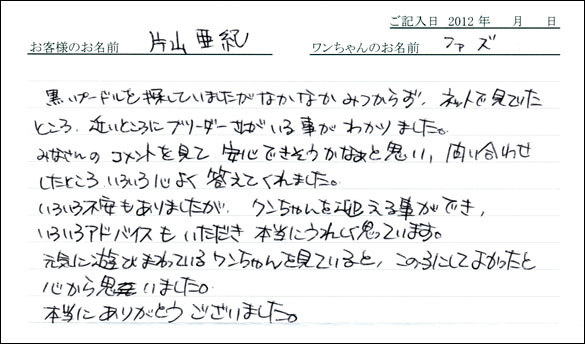 ご記入日 2012 年 月 日
お客様のお名前 片山 亜紀 ワンちゃんのお名前 ファズ
黒いプードルを探していましたがなかなかみつからず、ネットで見ていた
ところ、近いところにブリーダーさんがいる事がわかりました。
みなさんのコメントを見て安心できそうかなぁと思い、問い合わせ
したところいろいろ心よく答えてくれました。
いろいろ不安もありましたが、ワンちゃんを迎える事ができ、
いろいろアドバイスもいただき本当にうれしく思っています。
元気に遊びまわっているワンちゃんを見ていると、この子にしてよかったと
心から思いました。
本当にありがとうございました。